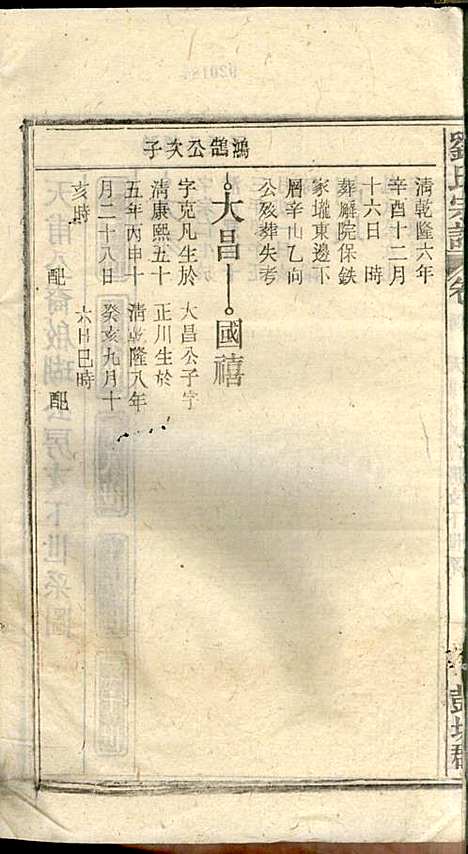 劉氏宗譜
卷
彭城郡
鴻鵠公次子
清乾隆六年
辛酉十二月
十六日 時
葬廨院保鉄
家壠東邊下
層辛山乙向
公殁葬失考
大昌
國禧
字克凡生於
清康熙五十
五年丙申十
月二十八日
亥時
配
大昌公子字
正川生於
清乾隆八年
癸亥九月十
六日巳時
配